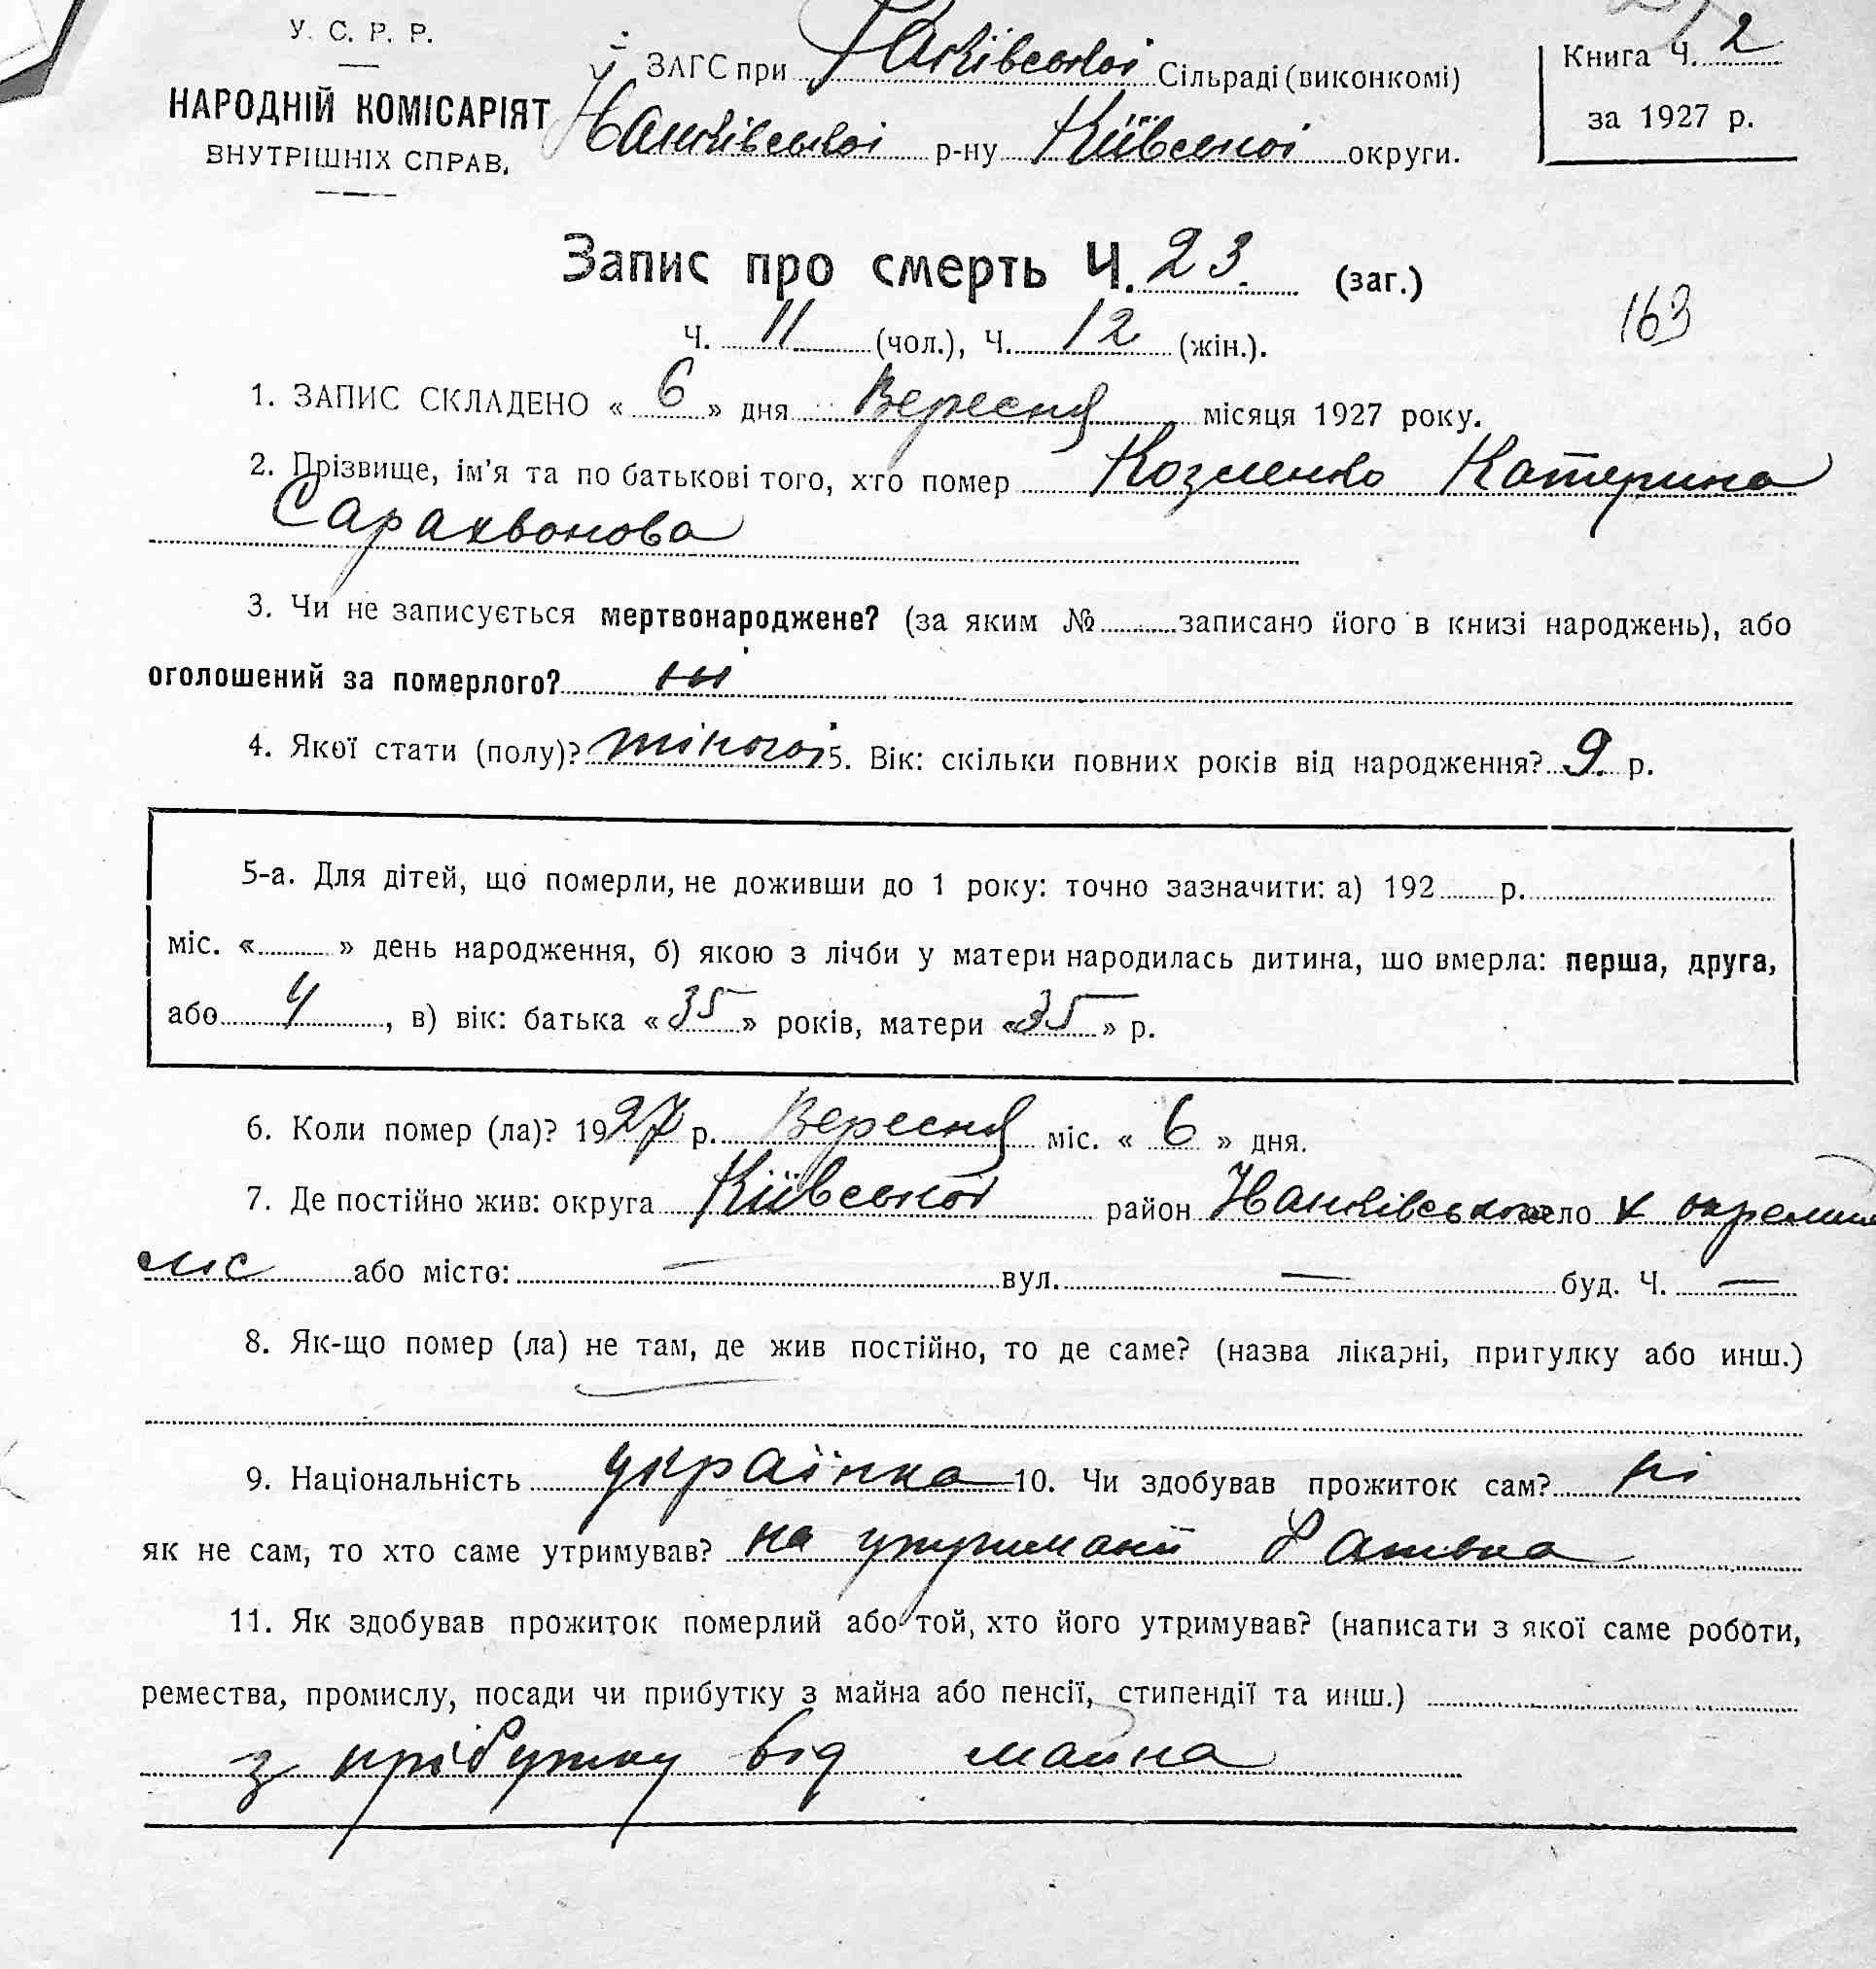 У. С. Р. Р.
НАРОДНІЙ КОМІСАРІЯТ
ВНУТРІШНІХ СПРАВ.
ЗАГС при Сільраді (виконкомі)
р-ну Київської округи.
Книга Ч. 2
за 1927 р.
Запис про смерть Ч. 23. (заг.)
163
Ч. 11 (чол.), Ч. 12 (жін.).
1. ЗАПИС СКЛАДЕНО « 6 » дня Вересня місяця 1927 року.
2. Прізвище, ім'я та по батькові того, хто помер Козленко Катерина
Сарахвонова
3. Чи не записується мертвонароджене? (за яким № записано його в книзі народжень), або
оголошений за померлого? ні
4. Якої стати (полу)? 5. Вік: скільки повних років від народження? 9. р.
5-а. Для дітей, що померли, не доживши до 1 року: точно зазначити: а) 192 р.
міс. « » день народження, б) якою з лічби у матери народилась дитина, шо вмерла: перша, друга,
або 4, в) вік: батька « 35 » років, матери « 35 » р.
6. Коли помер (ла)? 1927 р. Вересня міс. « 6 » дня.
7. Де постійно жив: округа Київської район село
або місто: — вул. — буд. Ч. —
8. Як-що помер (ла) не там, де жив постійно, то де саме? (назва лікарні, притулку або инш.)
9. Національність українка 10. Чи здобував прожиток сам? ні
як не сам, то хто саме утримував? на утриманії Батька
11. Як здобував прожиток померлий або той, хто його утримував? (написати з якої саме роботи,
ремества, промислу, посади чи прибутку з майна або пенсії, стипендії та инш.)
з прібутку від майна